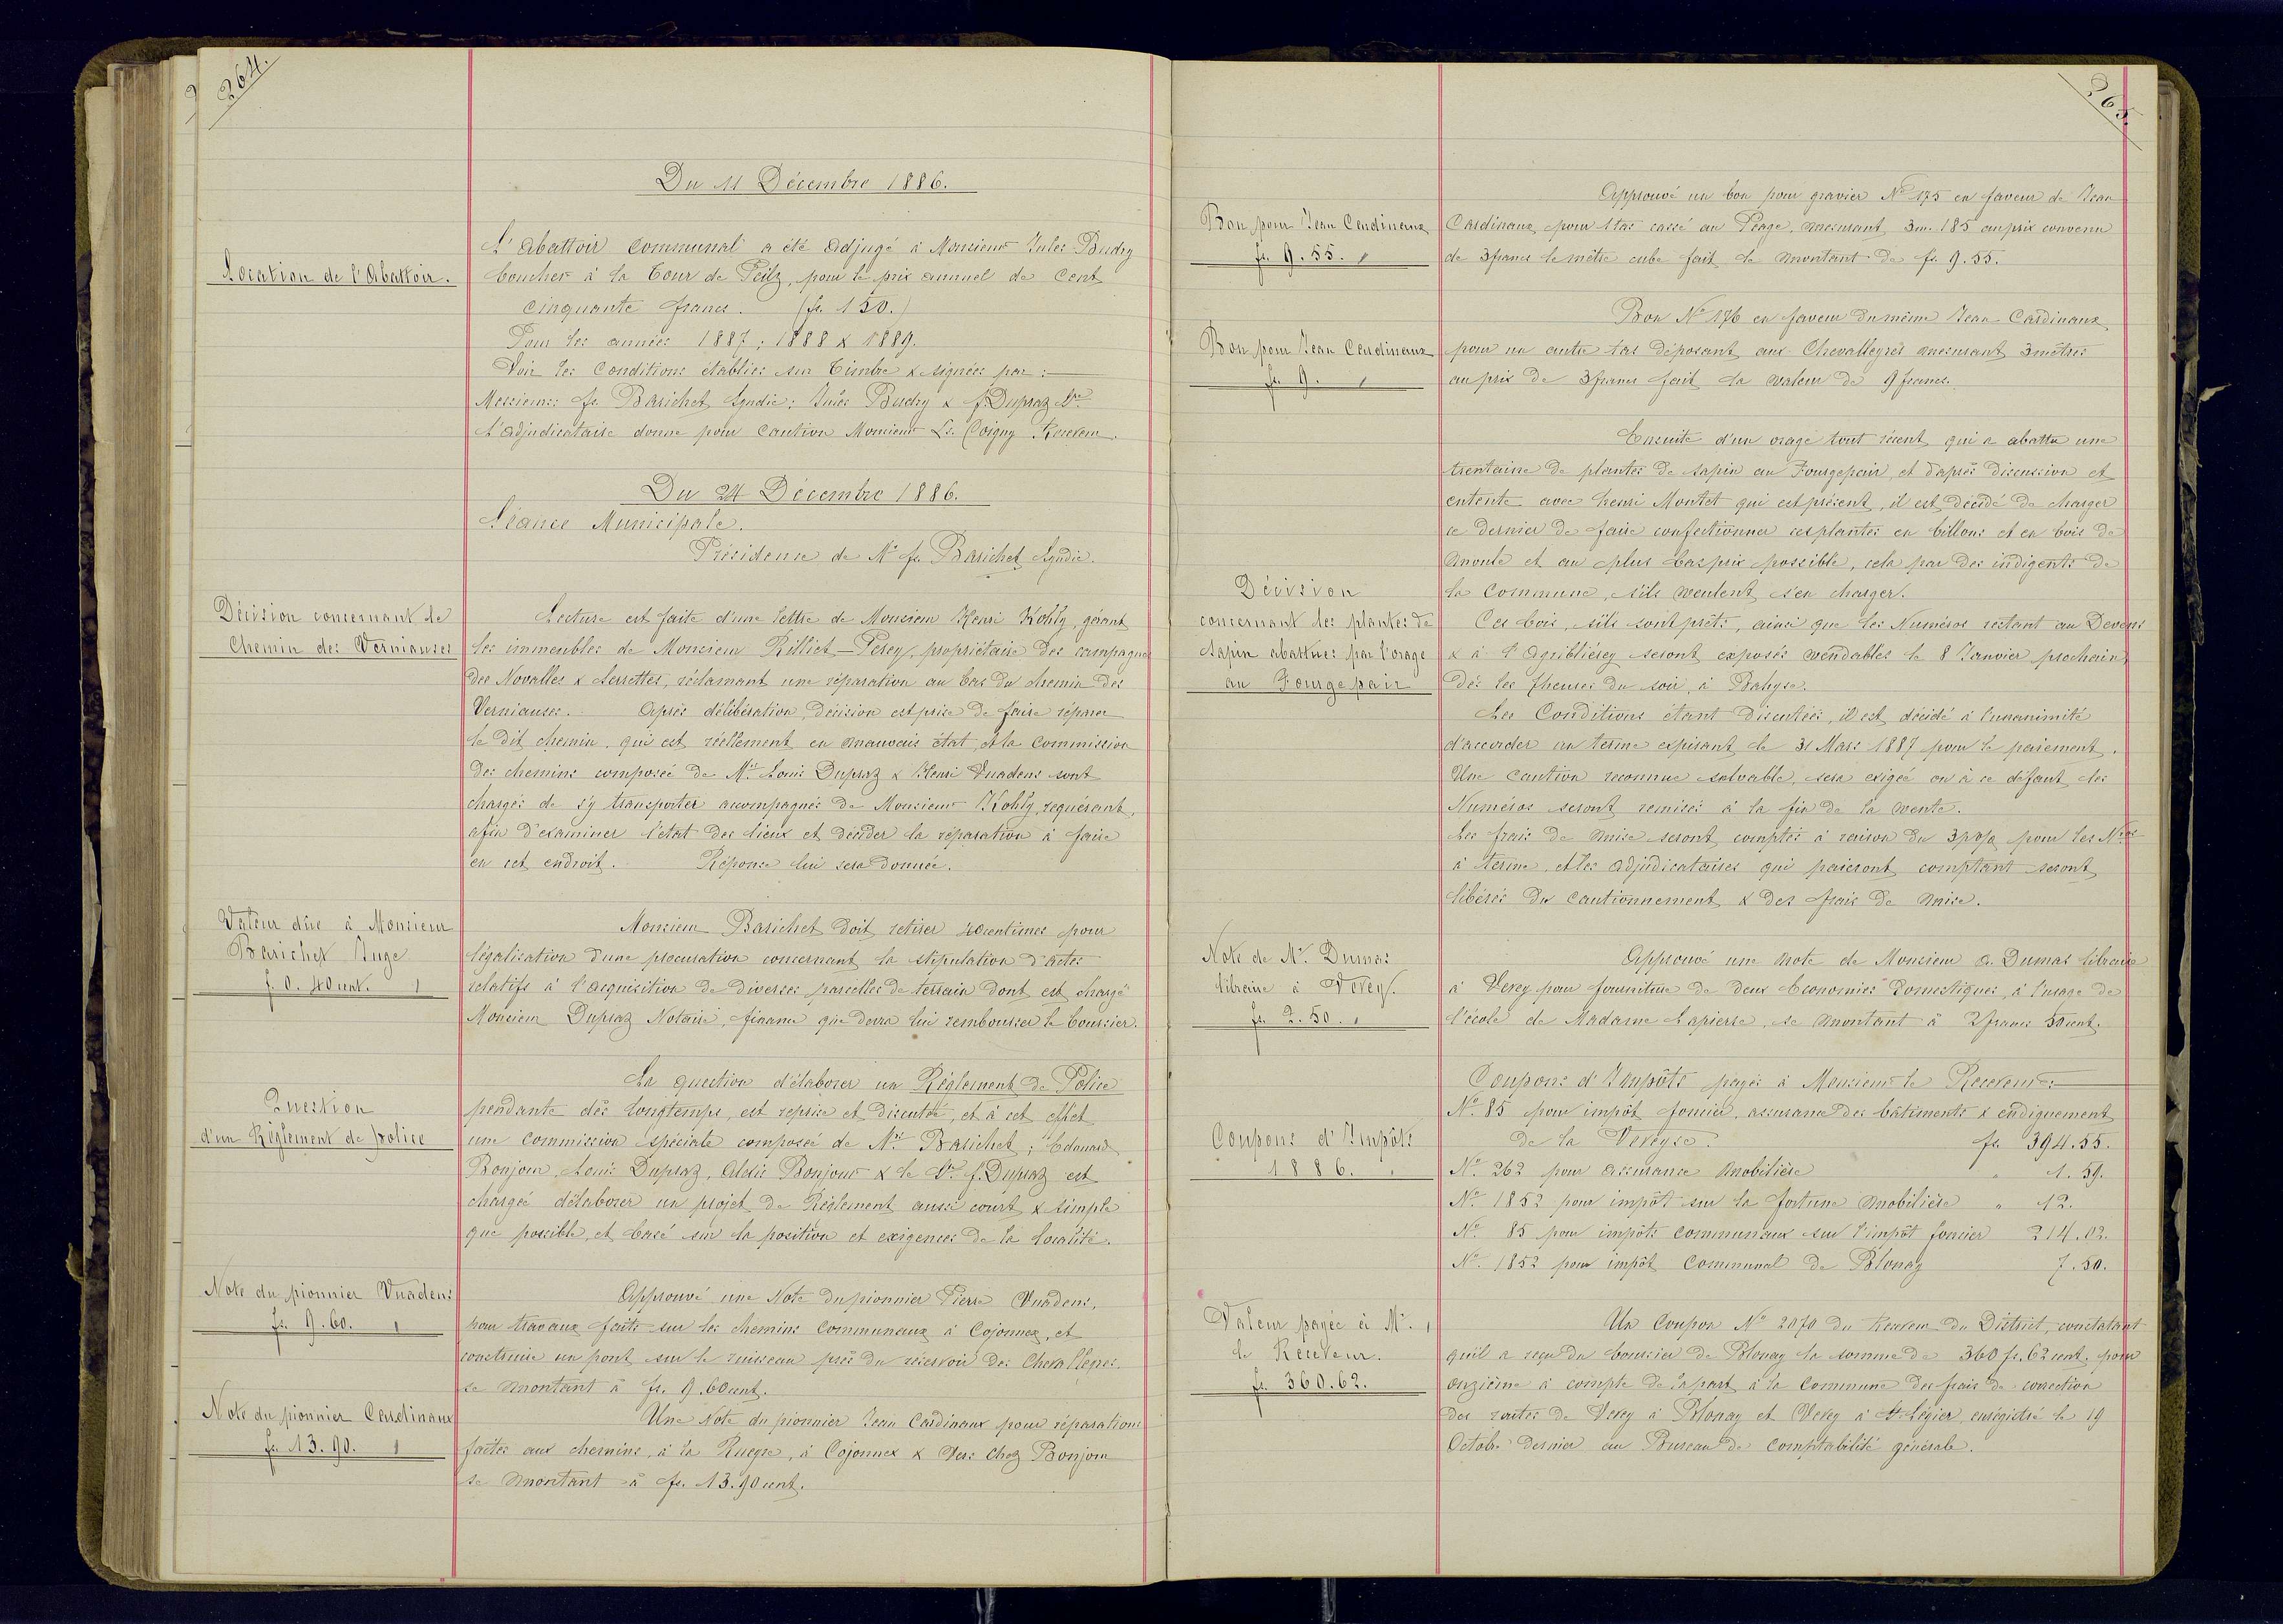 264.
Du 11 Décembre 1886.
Location de l'Abattoir.
L'Abattoir communal a été adjugé à Monsieur Jules Budry
boucher à la Tour de Peilz, pour le prix annuel de Cent
cinquante francs. (fr. 150.)
Pour les années 1887 ; 1888 & 1889.
Voir les Conditions établies sur Timbre & signées par :
Messieurs fs. Barichet Syndic ; Jules Budry & f. Dupraz Sre.
L'adjudicataire donne pour Caution Monsieur Ls. Coigny Receveur.
Du 24 Décembre 1886.
Séance Municipale.
Présidence de Mr fs. Barichet Syndic.
Décision concernant le
Chemin des Verniauses
Lecture est faite d'une lettre de Monsieur Henri Kohly, gérant
les immeubles de Monsieur Rilliet-Perey, propriétaire des campagnes
des Novalles & Serrettes, réclamant une réparation au bas du chemin des
Verniauses. Après délibération, décision est prise de faire réparer
le dit chemin, qui est réellement en mauvais état, et la Commission
des chemins composée de Mrs. Louis Dupraz & Henri Vuadens sont
chargés de s'y transporter accompagnés de Monsieur Kohly, requérant,
afin d'examiner l'état des lieux et décider la réparation à faire
en cet endroit. Réponse lui sera donnée.
Valeur dûe à Monsieur
Barichet Juge
f. 0. 40 cent.
Monsieur Barichet doit retirer 40 centimes pour
légalisation d'une procuration concernant la stipulation d'actes
relatifs à l'acquisition de diverses parcelles de terrain dont est chargé
Monsieur Dupraz Notaire, finance que devra lui rembourser le boursier.
Question
d'un Règlement de police
La question d'élaborer un Règlement de Police
pendante dès longtemps, est reprise et discutée, et à cet effet
une Commission spéciale composée de Mrs. Barichet ; Edouard
Bonjour, Louis Dupraz, Alexis Bonjour & le Sre f. Dupraz est
chargée d'élaborer un projet de Règlement aussi court & simple
que possible, et basé sur la position et exigences de la localité.
Note du pionnier Vuadens
fr. 9.60.
Approuvé une Note du pionnier Pierre Vuadens,
pour travaux faits sur les chemins Communaux à Cojonnex, et
construire un pont sur le ruisseau près du réservoir des Chevalleyres.
se montant à fr. 9.60 cent.
Note du pionnier Cardinaux
fr. 13.90.
Une Note du pionnier Jean Cardinaux pour réparations
faites aux chemins, à la Ruerse, à Cojonnex & Vers chez Bonjour
se montant à fr. 13.90 cent.
265.
Bon pour Jean Cardinaux
fr. 9.55.
Approuvé un bon pour gravier No 175 en faveur de Jean
Cardinaux, pour 1 tas cassé au Péage, mesurant 3m. 185 au prix convenu
de 3 francs le mètre cube fait le montant de fr. 9.55.
Bon pour Jean Cardinaux
fr. 9.
Bon No 176 en faveur du même Jean Cardinaux
pour un autre tas déposant aux Chevalleyres mesurant 3 mètres
au prix de 3 francs fait la valeur de 9 francs.
Décision
concernant les plantes de
sapin abattues par l'orage
au Fourgepair
Ensuite d'un orage tout récent, qui a abattu une
trentaine de plantes de sapin au Fourgepair, et d'après discussion et
entente avec Henri Montet qui est présent, il est décidé de charger
ce dernier de faire confectionner ces plantes en billons et en bois de
moule et au plus bas prix possible, cela par des indigents de
la Commune, s'ils veulent s'en charger.
Ces bois, s'ils sont prêts, ainsi que les Numéros restant au Devens
& à l'Agribliérey seront exposés vendables le 8 Janvier prochain,
dès les 7 heures du soir, à Bahyse.
Les Conditions étant discutées, il est décidé à l'unanimité
d'accorder un terme expirant le 31 Mars 1887 pour le paiement.
Une caution reconnue solvable, sera exigée ou à ce défaut, les
Numéros seront remisés à la fin de la vente.
Les frais de mise seront comptés à raison du 3 p% pour les Nros
à terme, et les adjudicataires qui paieront comptant seront
libérés du Cautionnement & des frais de mise.
Note de Mr. Dumas
libraire à Vevey.
fr. 2.50.
Approuvé une Note de Monsieur A. Dumas libraire
à Vevey pour fourniture de deux Economies Domestiques, à l'usage de
l'école de Madame Lapierre, se montant à 2 francs 50 cent.
Coupons d'Impôts
1886.
Coupons d'Impôts payés à Monsieur le Receveur :
No. 85 pour impôt foncier, assurance des bâtiments & endiguement
de la Veveyse. fr. 394.55.
No. 262 pour assurance mobilière " 1.59.
No. 1852 pour impôt sur la fortune mobilière " 12.
No. 85 pour impôts communaux sur l'impôt foncier 214.02.
No. 1852 pour impôt Communal de Blonay 7.50.
Valeur payée à Mr.
le Receveur.
fr. 360.62.
Un Coupon No 2070 du Receveur du District, constatant
qu'il a reçu du boursier de Blonay la somme de 360 fr. 62 cent. pour
onzième à compte de la part à la Commune des frais de correction
des routes de Vevey à Blonay et Vevey à St. Légier, enrégistré le 19
Octobre dernier au Bureau de Comptabilité générale.